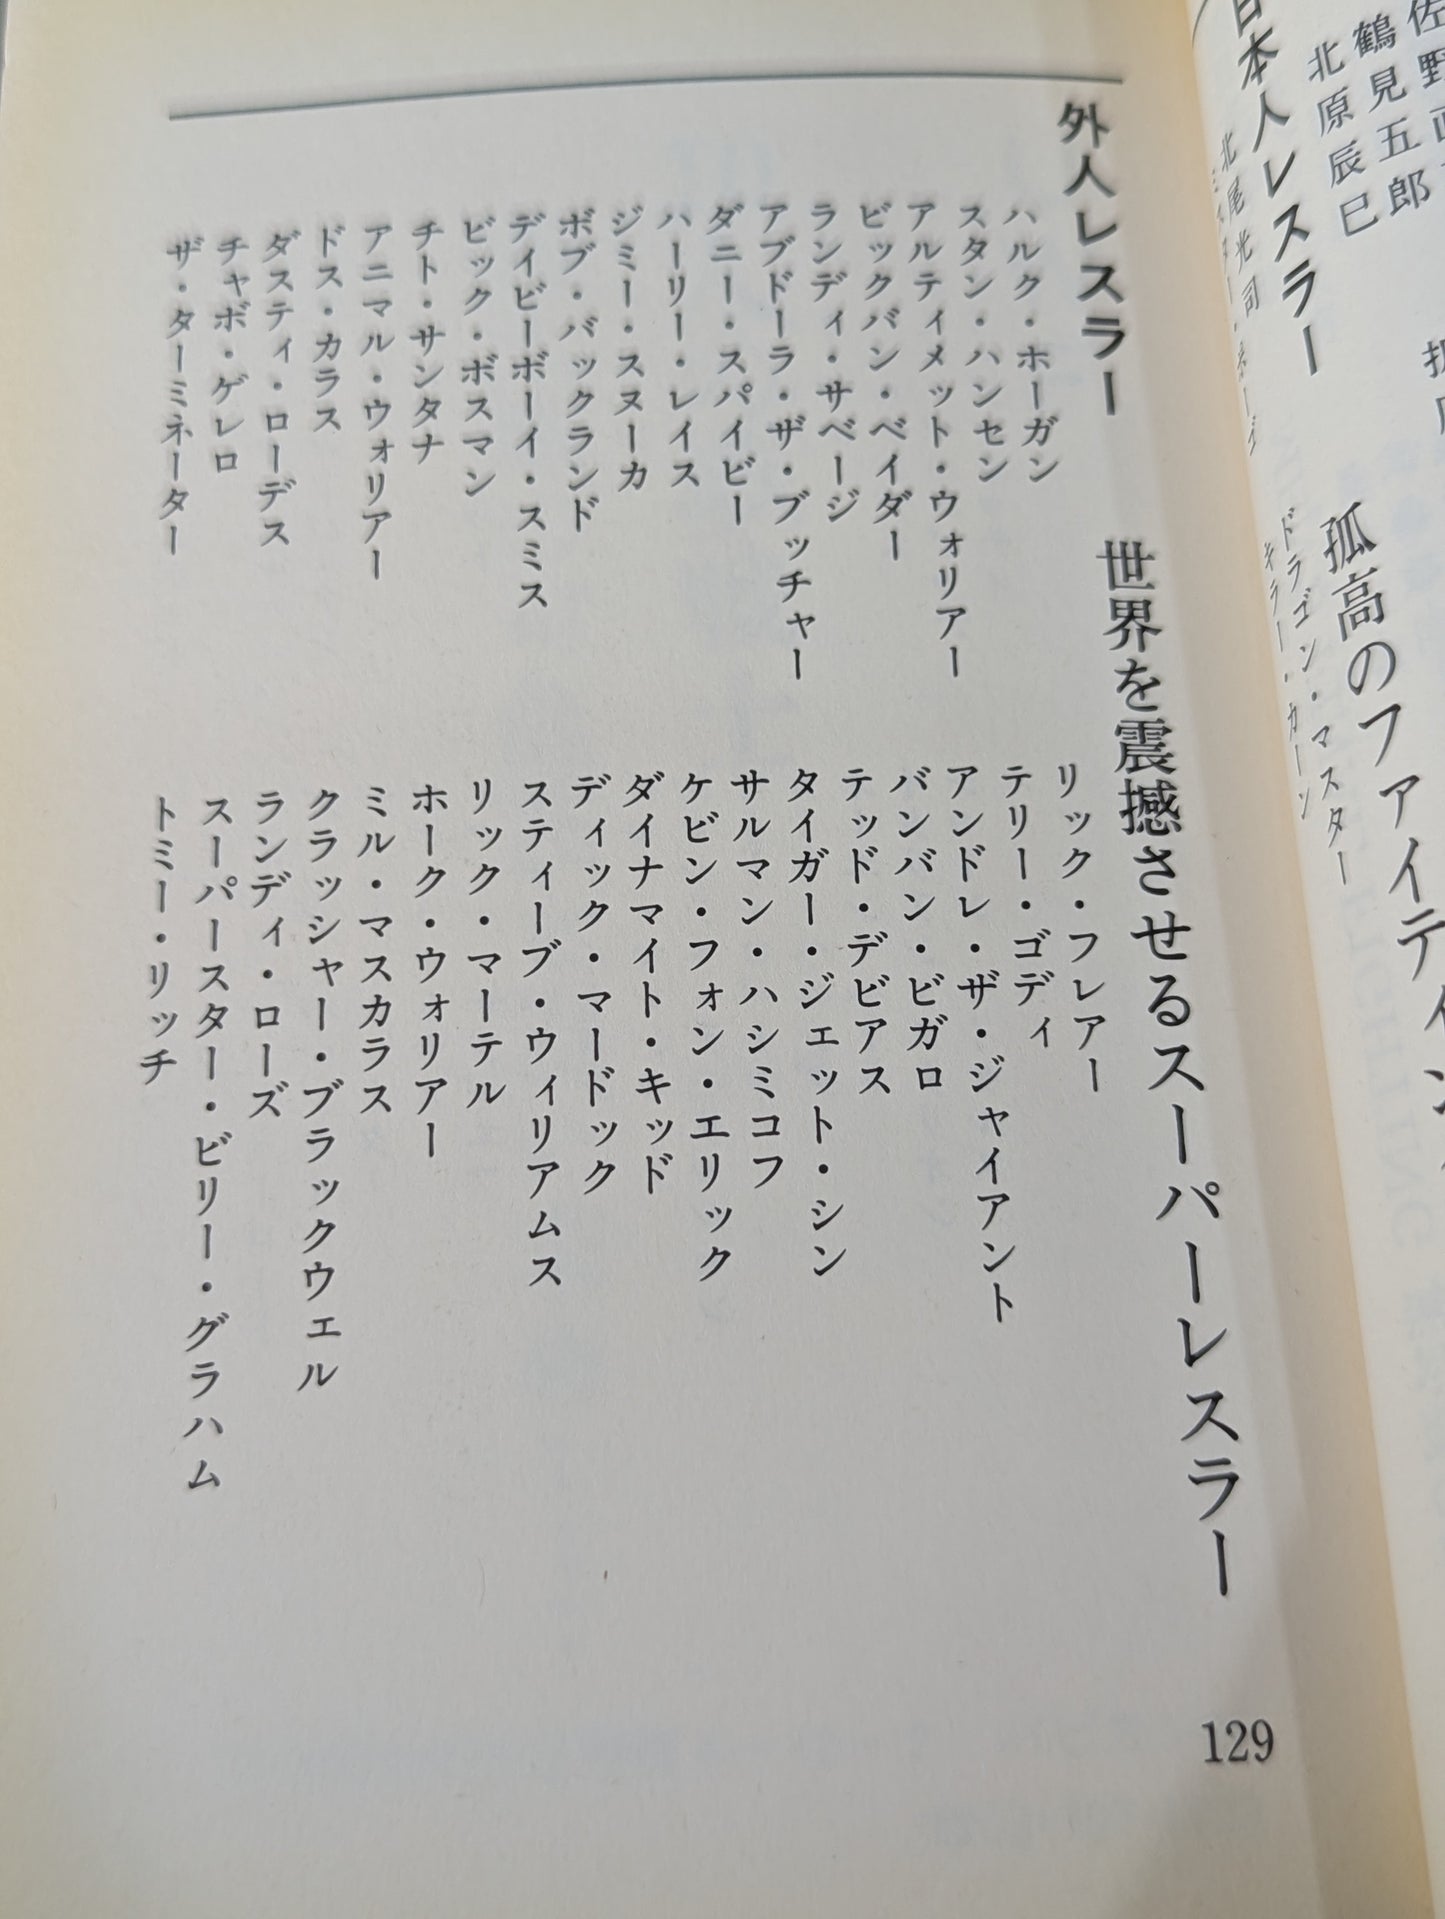 外人レスラー　世界を震撼させるスーパーレスラー
ハルク・ホーガン
スタン・ハンセン
アルティメット・ウォリアー
ビックバン・ベイダー
ランディ・サベージ
アブドーラ・ザ・ブッチャー
ダニー・スパイビー
ハーリー・レイス
ジミー・スヌーカ
ボブ・バックランド
デイビーボーイ・スミス
ビック・ボスマン
チト・サンタナ
アニマル・ウォリアー
ドス・カラス
ダスティ・ローデス
チャボ・ゲレロ
ザ・ターミネーター
リック・フレアー
テリー・ゴディ
アンドレ・ザ・ジャイアント
バンバン・ビガロ
テッド・デビアス
タイガー・ジェット・シン
サルマン・ハシミコフ
ケビン・フォン・エリック
ダイナマイト・キッド
ディック・マードック
スティーブ・ウィリアムス
リック・マーテル
ホーク・ウォリアー
ミル・マスカラス
クラッシャー・ブラックウェル
ランディ・ローズ
スーパースター・ビリー・グラハム
トミー・リッチ
129
鶴見五郎
北原辰巳
日本人レスラー　孤高のファイティン
北尾光司
ドラゴン・マスター
キラー・カーン